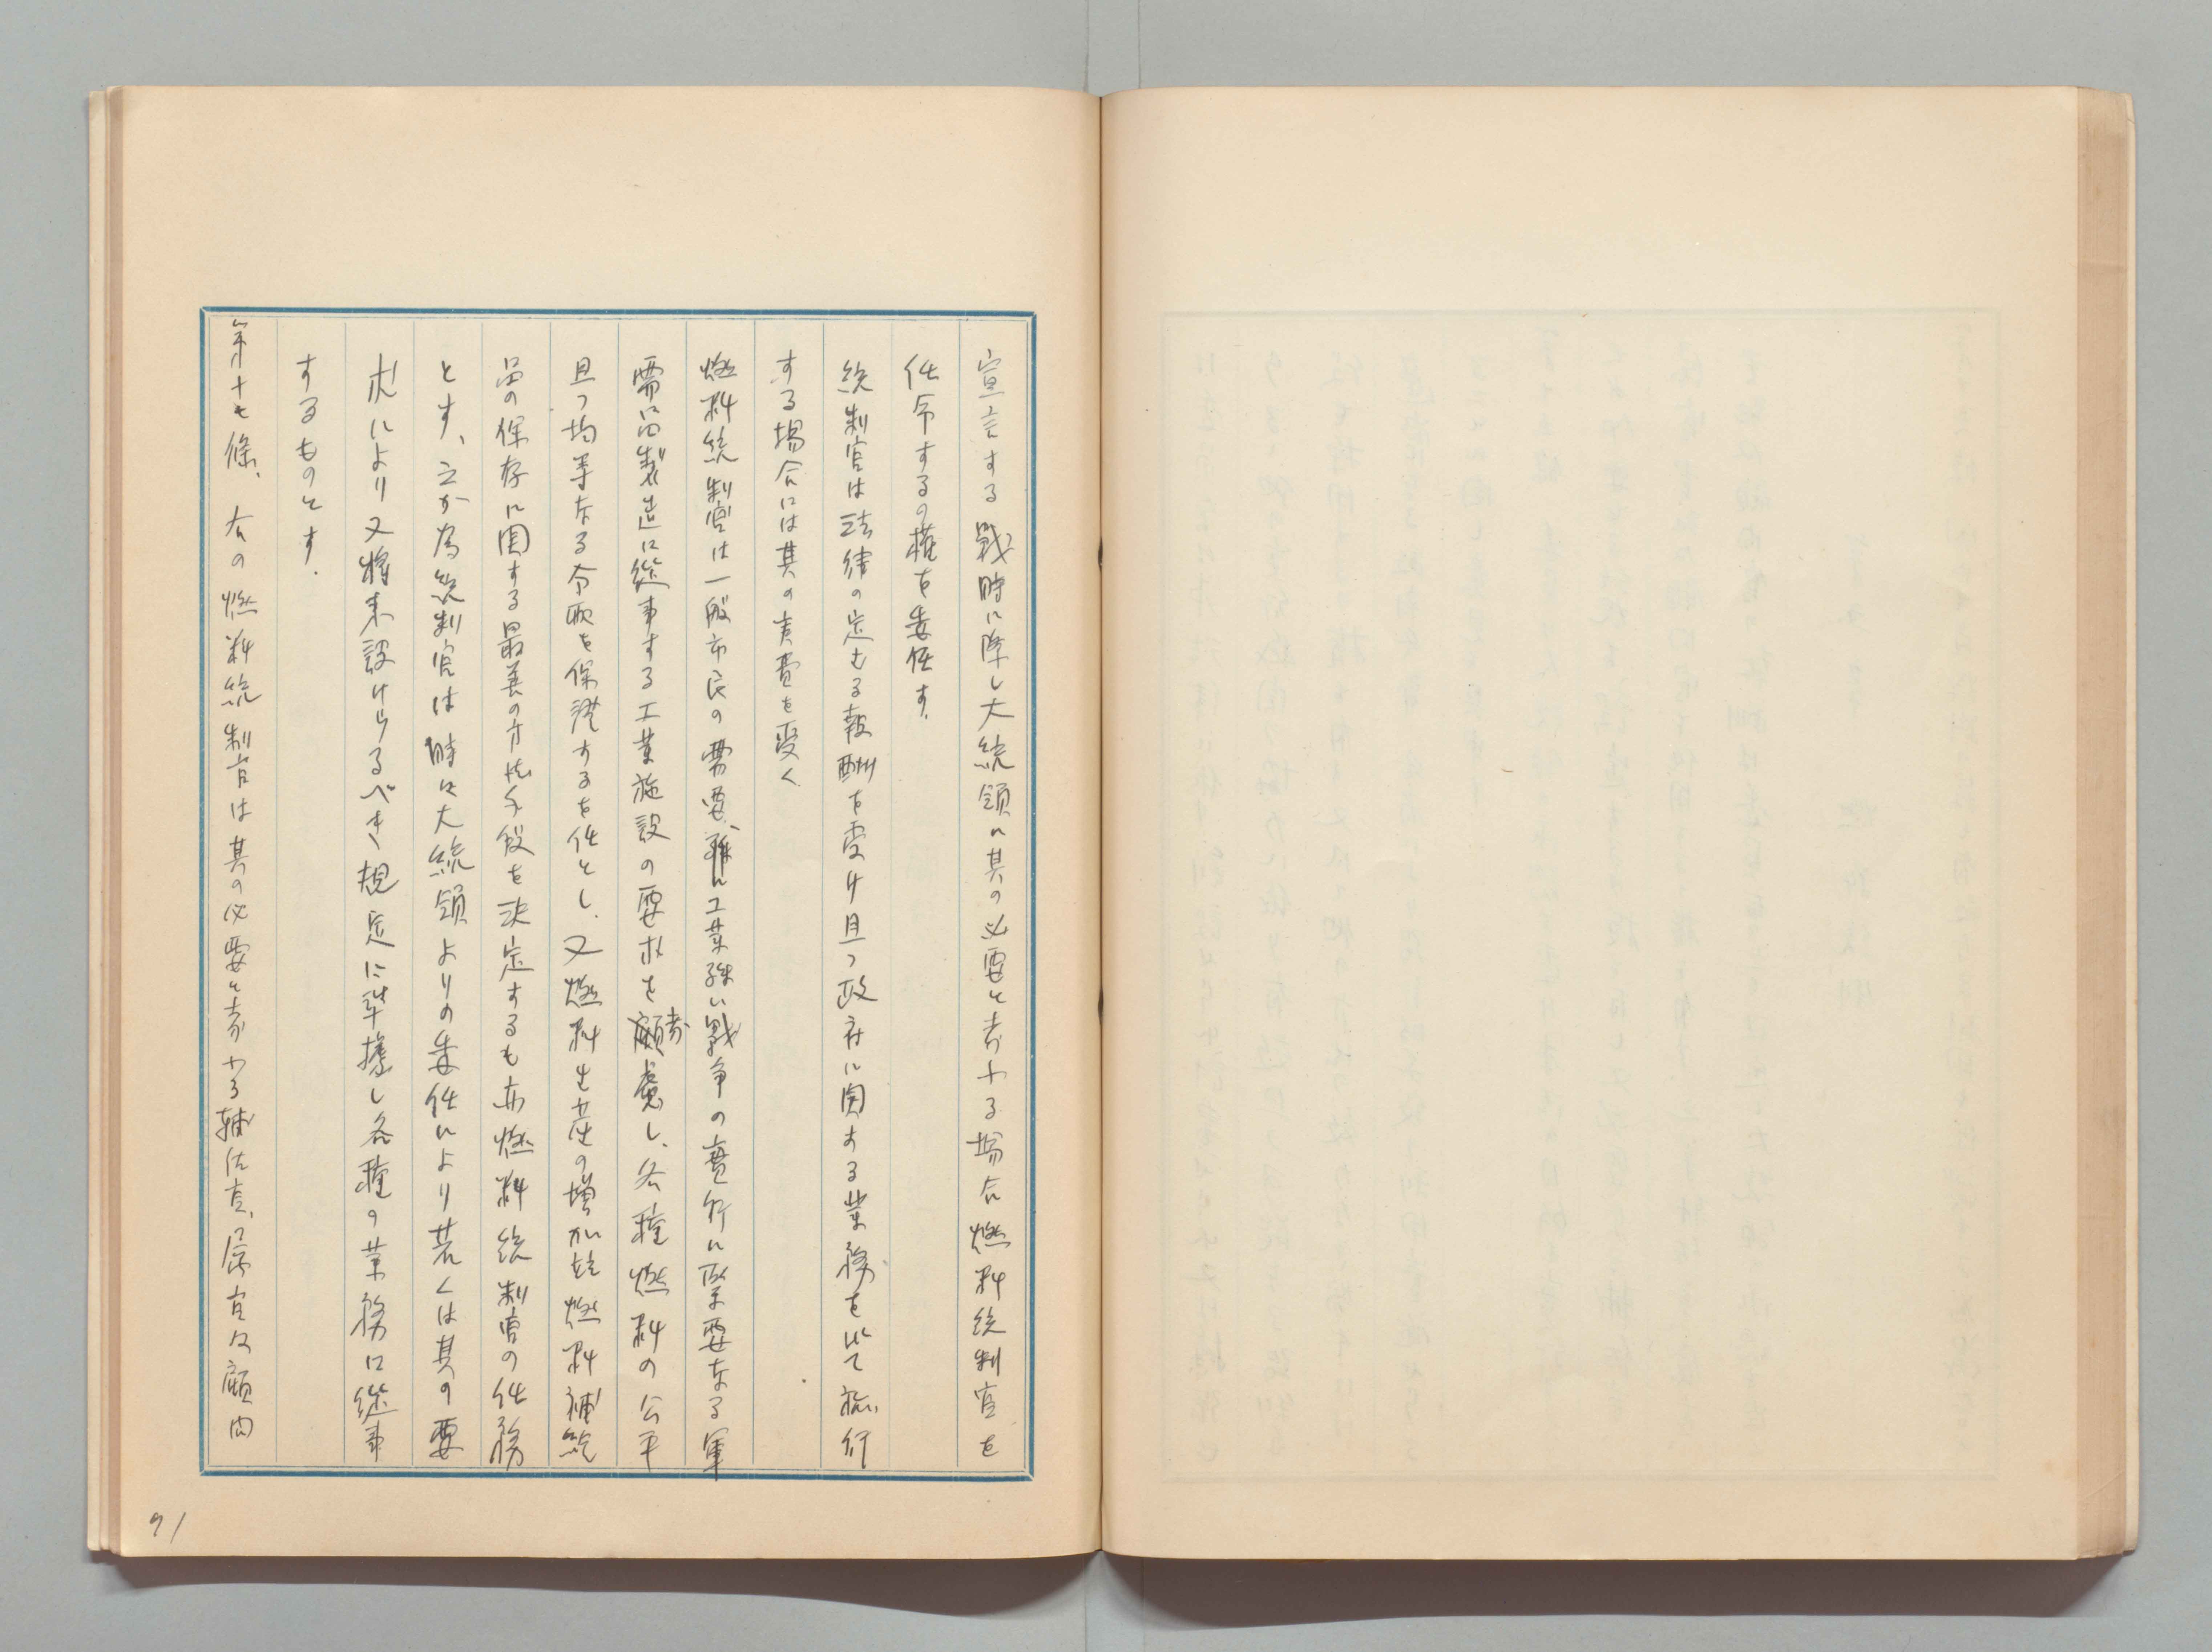 宣言する戰時に際し大統領に其の必要と考ふる場合燃料統制官を
任命するの権を委任す.
統制官は法律の定むる報酬を受け且つ政府に関する業務を以て旅行
する場合には其の実費を受く
燃料統制官は一般市民の需要、工業殊に戰争の実行に緊要なる軍
需品製造に從事する工業施設の要求を顧慮し、各種燃料の公平
且つ均等なる分配を保證するを任とし、又燃料生産の増加並燃料補給
品の保存に関する最善の方法手段を決定するも亦燃料統制官の任務
とす、之が為統制官は時に大統領よりの委任により若くは其の要
求により又將来設けらるべき規定に準據し各種の業務に從事
するものとす.
第十七條、右の燃料統制官は其の必要と考ふる輔佐官、属官及顧問
91